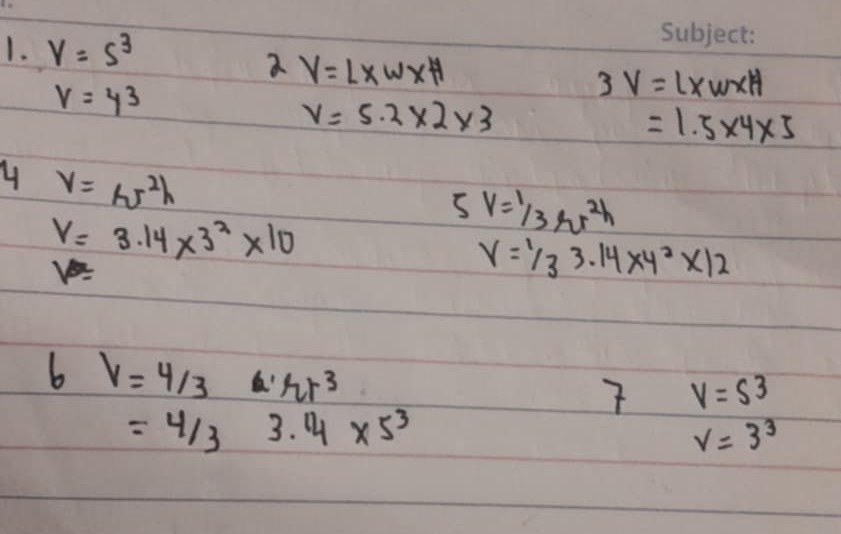 Subject:
1. V = S³
V = 4³
2 V = L×W×H
V = 5.2×2×3
3 V = L×W×H
= 1.5×4×5
4 V = πr²h
V = 3.14×3²×10
V=
5 V=1/3 πr²h
V=1/3 3.14×4²×12
6 V=4/3 πr³
= 4/3 3.14 ×5³
7 V=S³
V=3³